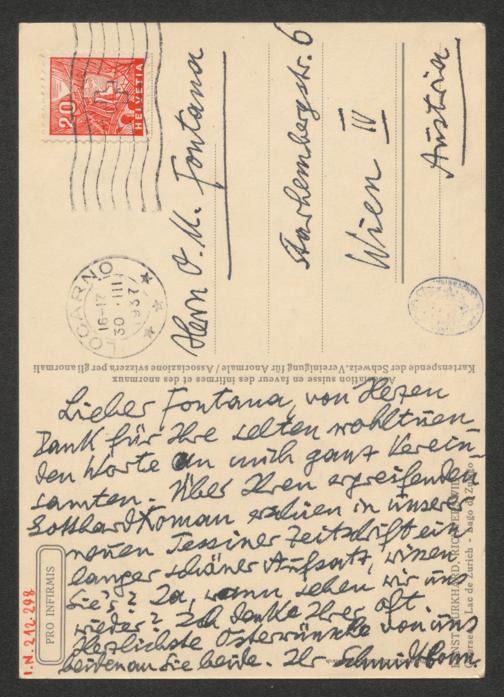 20
HELVETIA
LOCARNO
16-17
30.III.
1937
Herrn O. M. Fontana
Starhembergstr. 6
Wien IV
Austria
Association suisse en faveur des infirmes et des anormaux
Kartenspende der Schweiz. Vereinigung für Anormale / Associazione svizzera per gli anormali
Lieber Fontana, von Herzen
Dank für Ihre selten wohltuen-
den Worte an mich ganz Verein-
samten. Über Ihren ergreifenden
Gotthard Roman erschien in unserer
neuen Tessiner Zeitschrift ein
langer schöner Aufsatz, wissen
Sie's? Ja, wann sehen wir uns
wieder? Ich denke Ihrer oft.
Herzlichste Osterwünsche von uns
beiden an Sie beide. Ihr Schmidtbonn
PRO INFIRMIS
I.N. 212.298
BURKHARD, RICHTERSWIL
Lac de Zurich - Lago di Zurigo